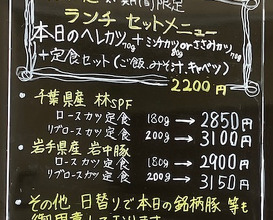 期間限定
ランチ セットメニュー
本日のヘレカツ70g+ミンチカツ80gorささみカツ70g
+定食セット(ご飯,みそ汁,キャベツ)
2200円
・千葉県産 林SPF
ロースカツ定食 180g→2850円
リブロースカツ定食 200g→3100円
・岩手県産 岩中豚
ロースカツ定食 180g→2900円
リブロースカツ定食 200g→3150円
・その他 日替りで本日の銘柄豚 等も